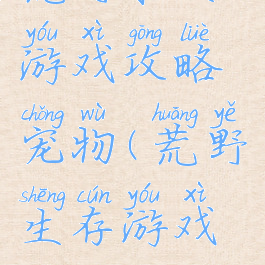 yóu xì gōng lüè
游戏攻略
chǒng wù huāng yě
宠物(荒野
shēng cún yóu xì
生存游戏